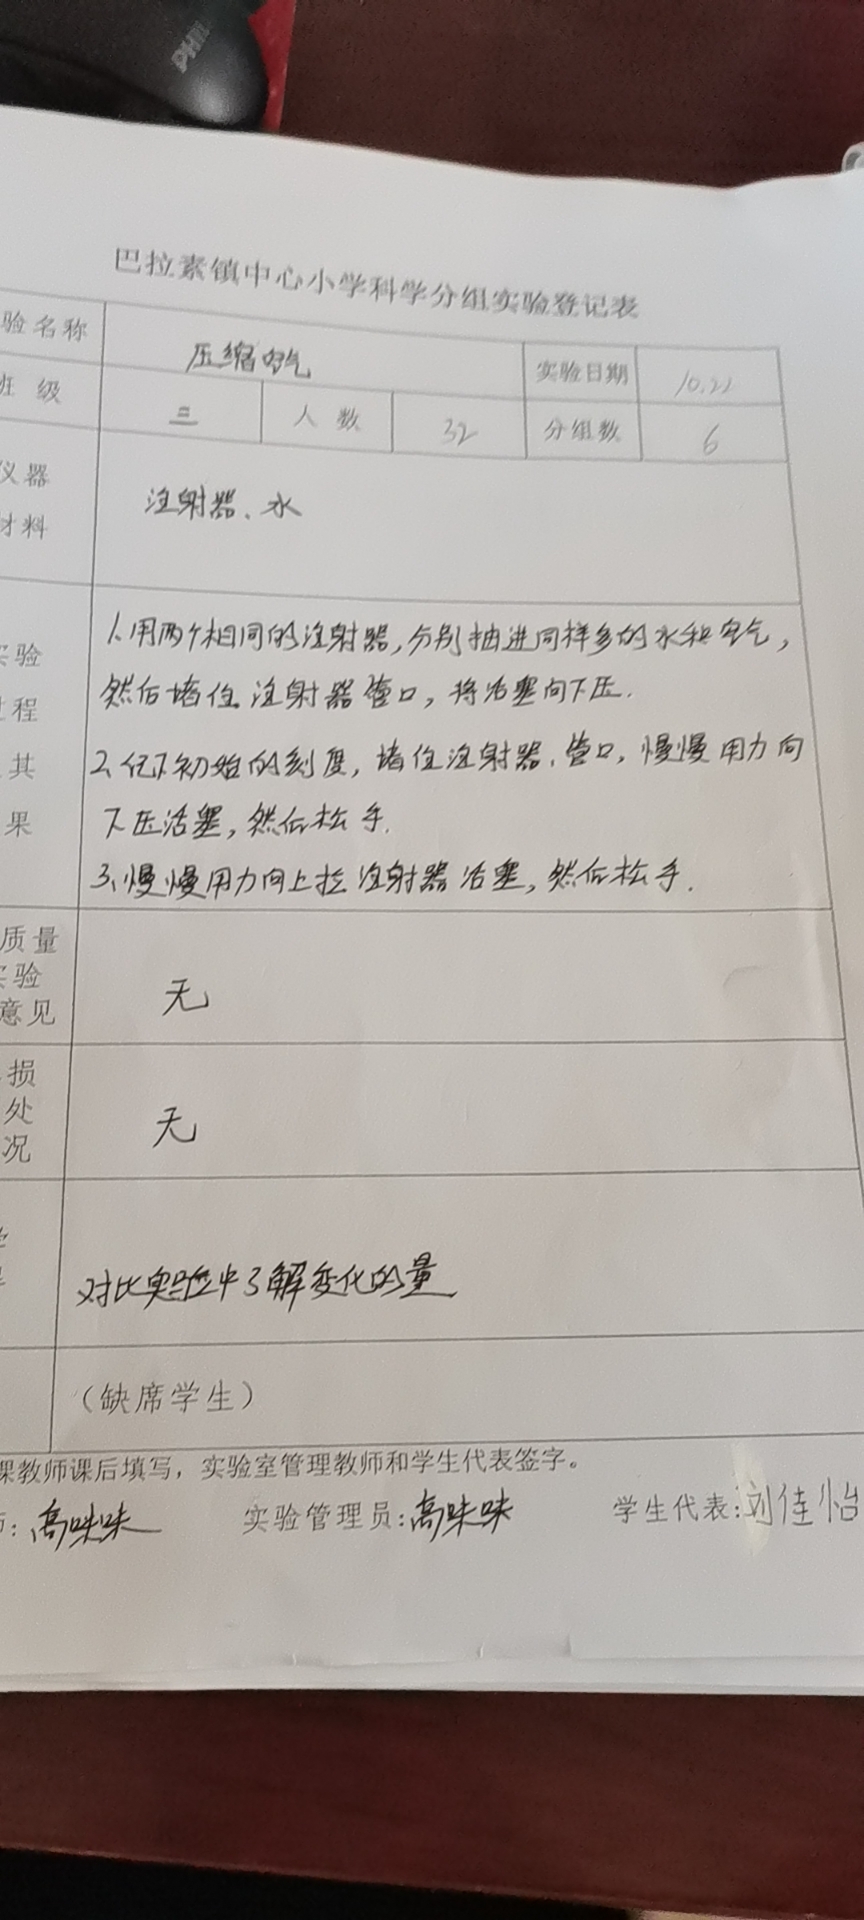 PHIL
巴拉素镇中心小学科学分组实验登记表
验名称 压缩空气 实验日期 10.21
班 级 三 人 数 32 分组数 6
仪器
材料
注射器、水
1、用两个相同的注射器,分别抽进同样多的水和空气,
实验
然后堵住注射器管口,将活塞向下压.
过程
2、记下初始的刻度,堵住注射器、管口,慢慢用力向
其
下压活塞,然后松手.
果
3、慢慢用力向上拉注射器活塞,然后松手.
质量
实验
意见
无
损
处
况
无
对比实验中了解变化的量
(缺席学生)
课教师课后填写,实验室管理教师和学生代表签字。
师:高味味 实验管理员:高味味 学生代表:刘佳怡